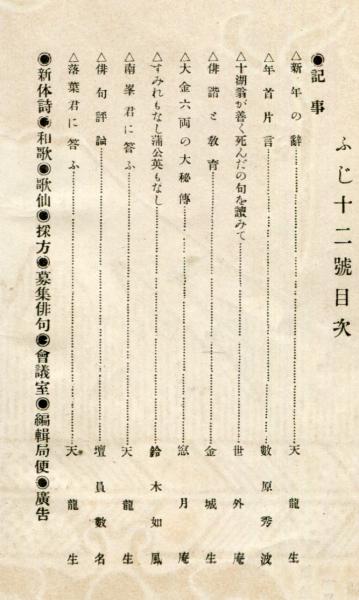 ふじ十二號目次
◉記事
△新年の辭……天龍生
△年首片言……數原秀波
△十湖翁が善く死んだの句を讀みて……世外庵
△俳諧と敎育……金城生
△大金六両の大秘傳……窓月庵
△すみれもなし蒲公英もなし……鈴木如風
△南峯君に答ふ……天龍生
△俳句評論……壇員數名
△落葉君に答ふ……天龍生
◉新体詩◉和歌◉歌仙◉採方◉募集俳句◉會議室◉編輯局便◉廣告